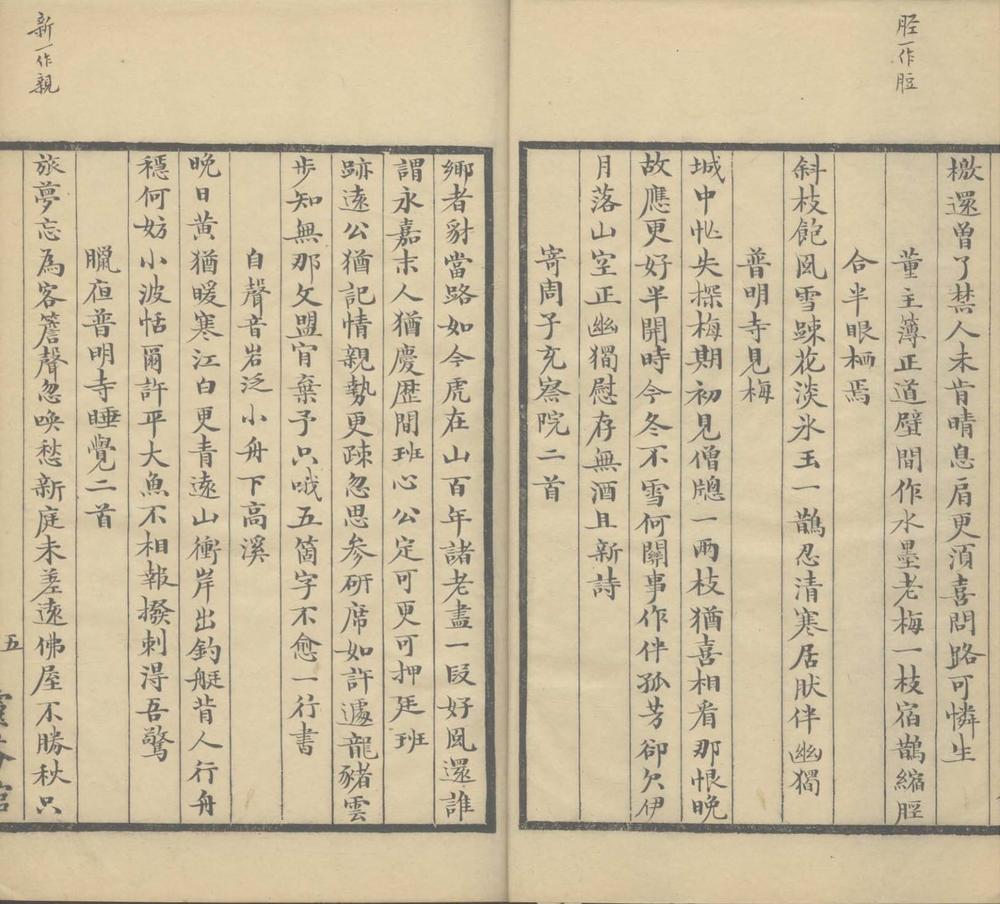 脛一作脰
檄還曽了禁人未肯晴息肩更湏喜問路可憐生
董主簿正道壁間作水墨老梅一枝宿鵲縮脛
合半眼栖焉
斜枝飽風雪踈花淡氷玉一鵲忍清寒居肰伴幽獨
普明寺見梅
城中忙失探梅期初見僧牎一兩枝猶喜相看那恨晚
故應更好半開時今冬不雪何關事作伴孤芳卻欠伊
月落山空正幽獨慰存無酒且新詩
寄周子充察院二首
鄉者豺當路如今虎在山百年諸老盡一叚好風還誰
謂永嘉末人猶慶歷間班心公定可更可押廷班
跡逺公猶記情親勢更疎忽思參研席如許邊龍豬雲
步知無那文盟肎棄予只哦五箇字不愈一行書
自聲音岩泛小舟下高溪
晩日黄猶暖寒江白更青逺山衝岸出釣艇背人行舟
穏何妨小波恬爾許平大魚不相報撥刺得吾驚
臘夜普明寺睡覺二首
旅夢忘為客簷聲忽喚愁新庭未差逺佛屋不勝秋只
新一作親
五